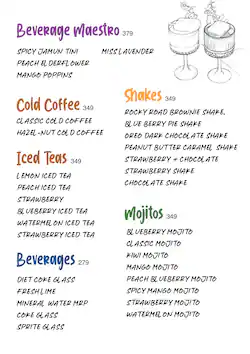 Beverage Maestro 379
SPICY JAMUN TINI
MISS LAVENDER
PEACH ELDERFLOWER
MANGO POPPINS
Cold Coffee 349
CLASSIC COLD COFFEE
HAZEL-NUT COLD COFFEE
Iced Teas 349
LEMON ICED TEA
PEACH ICED TEA
STRAWBERRY
BLUEBERRY ICED TEA
WATERMELON ICED TEA
STRAWBERRY ICED TEA
Beverages 279
DIET COKE GLASS
FRESH LIME
MINERAL WATER MRP
COKE GLASS
SPRITE GLASS
Shakes 349
ROCKY ROAD BROWNIE SHAKE.
BLUE BERRY PIE SHAKE
OREO DARK CHOCOLATE SHAKE
PEANUT BUTTER CARAMEL SHAKE
STRAWBERRY + CHOCOLATE
STRAWBERRY SHAKE
CHOCOLATE SHAKE
Mojitos 349
BLUEBERRY MOJITO
CLASSIC MOJITO
KIWI MOJITO
MANGO MOJITO
PEACH BLUEBERRY MOJITO
SPICY MANGO MOJITO
STRAWBERRY MOJITO
WATERMELON MOJITO